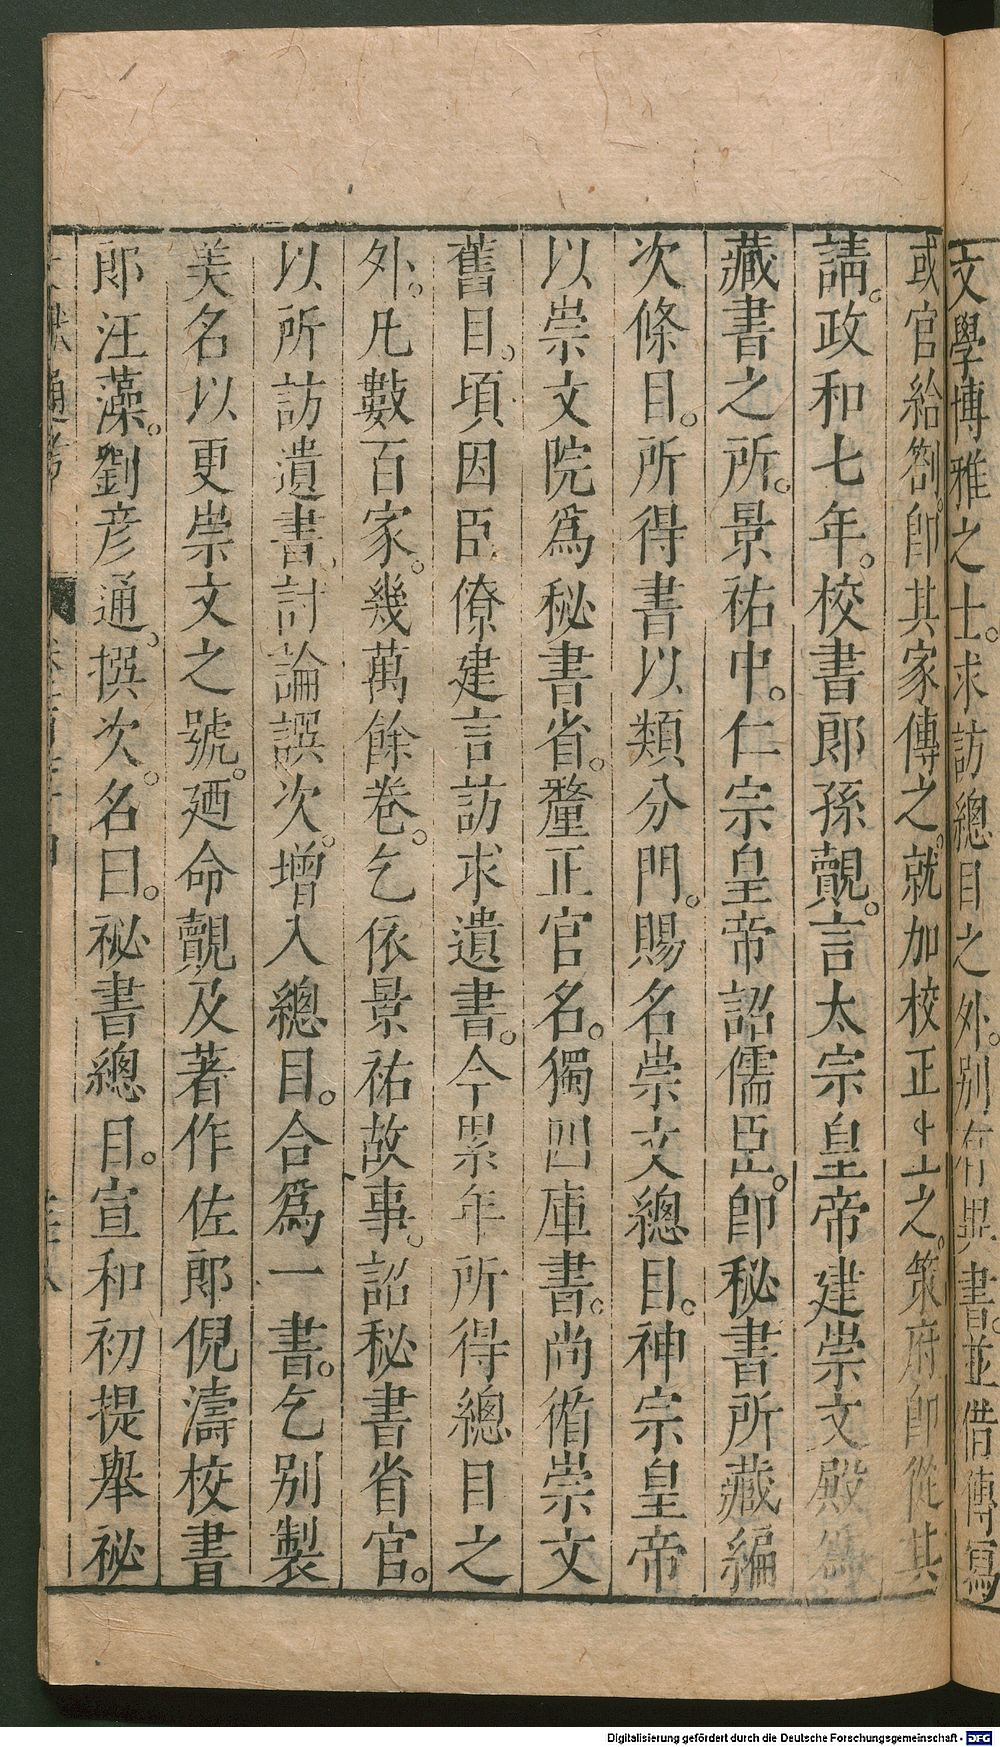 文學博雅之士。求訪總目之外。别有異書。並借傳寫
或官給劄。卽其家傳之。就加校正上之。策府卽從其
請。政和七年。校書郎孫覿。言太宗皇帝建崇文殿爲
藏書之所。景祐中。仁宗皇帝詔儒臣。卽秘書所藏編
次條目。所得書以類分門。賜名崇文總目。神宗皇帝
以崇文院爲秘書省。釐正官名。獨四庫書。尚循崇文
舊目。頃因臣僚建言訪求遺書。今累年所得總目之
外。凡數百家。幾萬餘卷。乞依景祐故事。詔秘書省官。
以所訪遺書、討論譔次。增入總目。合爲一書。乞别製
美名以更崇文之號。廼命覿及著作佐郎倪濤校書
郎汪藻。劉彥通。撰次。名曰。祕書總目。宣和初提舉祕
通考
Digitalisierung gefördert durch die Deutsche Forschungsgemeinschaft - DFG